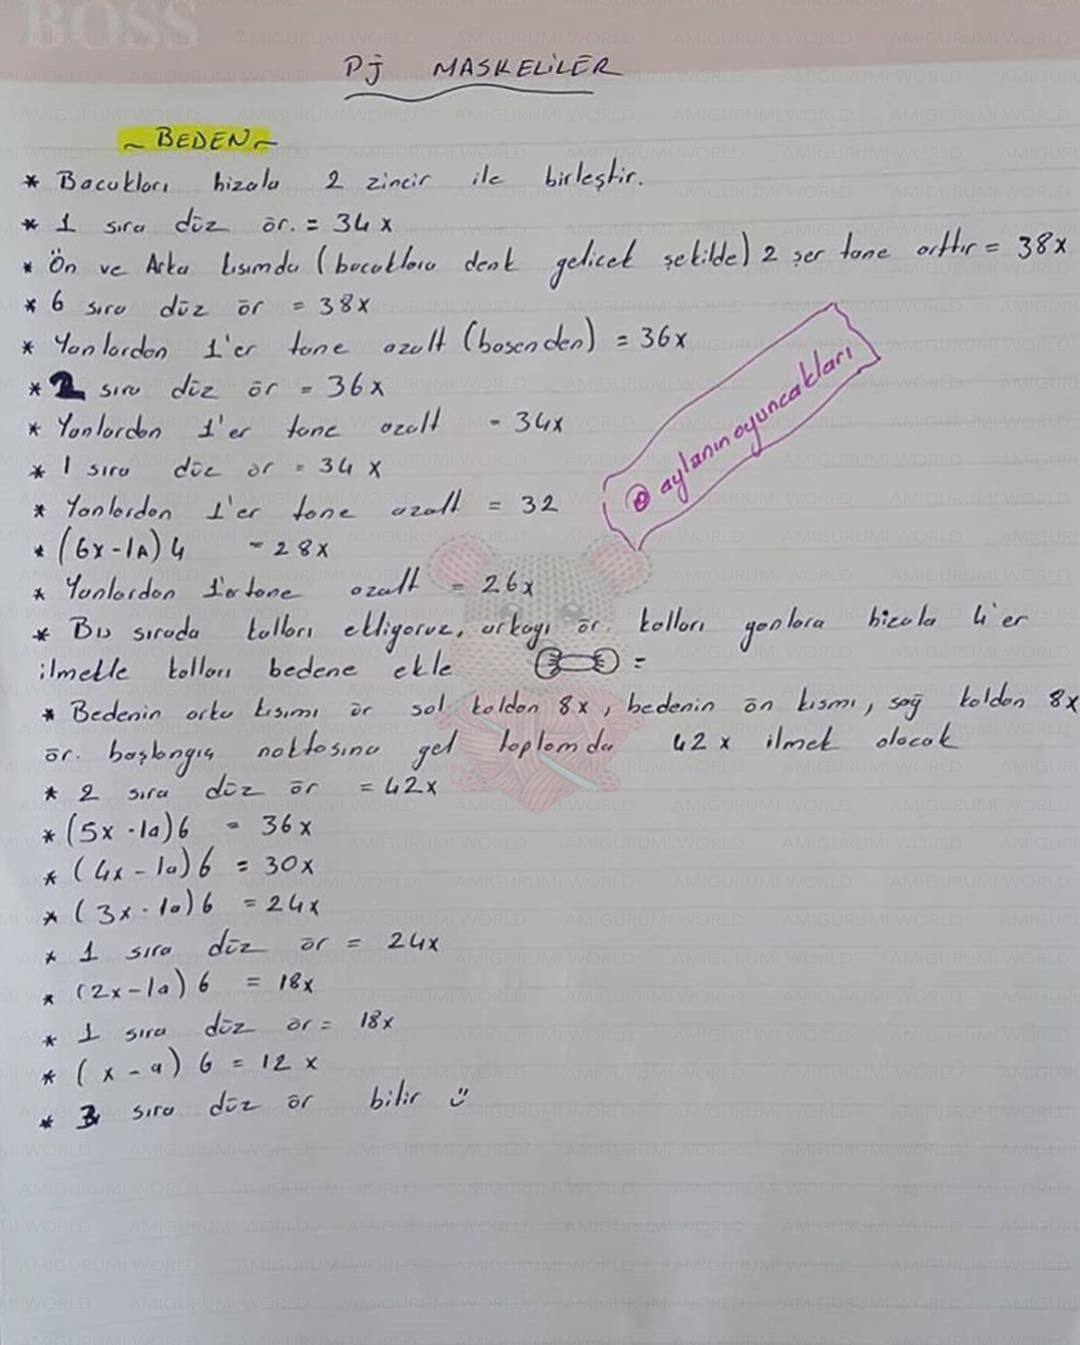 BOSS
Pj MASKELİLER
~ BEDEN ~
* Bacakları hizala 2 zincir ile birleştir.
* 1 sıra düz ör. = 34x
* Ön ve Arka kısımda (bacaklara denk gelicek şekilde) 2 şer tane arttır = 38x
* 6 sıra düz ör = 38x
* Yanlardan 1'er tane azalt (basenden) = 36x
* 2 sıra düz ör = 36x
* Yanlardan 1'er tane azalt = 34x
* 1 sıra düz ör = 34 x
* Yanlardan 1'er tane azalt = 32
@ aylanınoyuncakları
* (6x-1A) 4 = 28x
* Yanlardan 1'er tane azalt = 26x
* Bu sırada kolları ekliyoruz, arkayı ör. kolları yanlara hizala 4'er
ilmekle kolları bedene ekle =
* Bedenin arka kısımı ör sol koldan 8x, bedenin ön kısmı, sağ koldan 8x
ör. başlangıç noktasına gel toplamda 42 x ilmek olacak
* 2 sıra düz ör = 42x
* (5x -1a) 6 = 36x
* (4x - 1a) 6 = 30x
* (3x - 1a) 6 = 24x
* 1 sıra düz ör = 24x
* (2x - 1a) 6 = 18x
* 1 sıra düz ör = 18x
* (x - a) 6 = 12 x
* 3 sıra düz ör bitir
AMIGURUMI WORLD